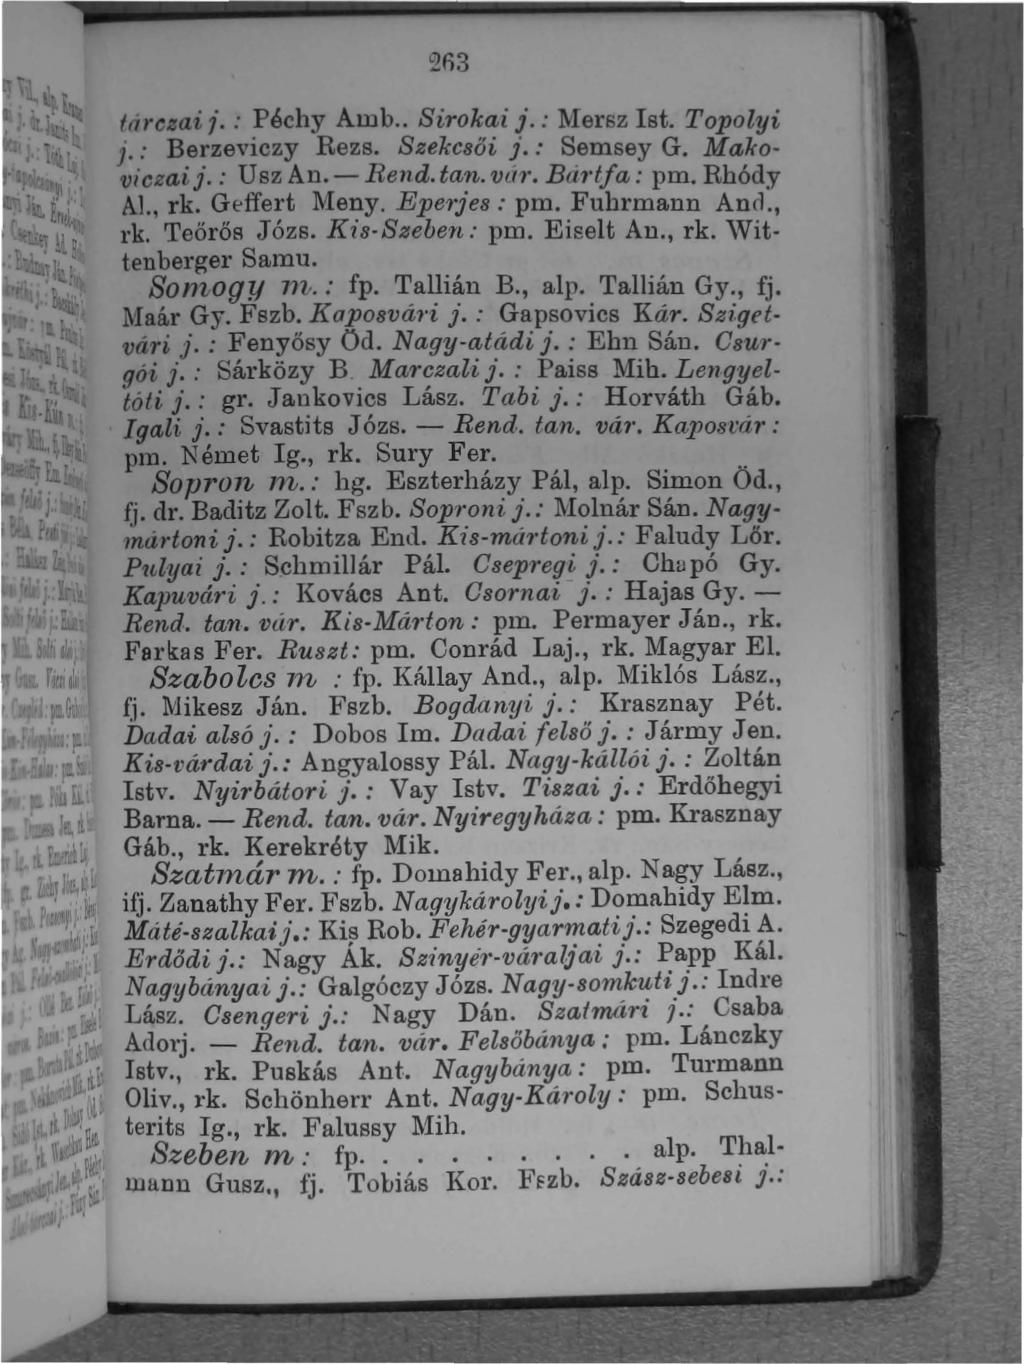 263
tárczai j. : Péchy Amb.. Sirokai j. : Mersz Ist. Topolyi
j. : Berzeviczy Rezs. Szekcsői j. : Semsey G. Mako-
viczai j. : Usz An. — Rend. tan. vár. Bártfa : pm. Rhódy
Al., rk. Geffert Meny. Eperjes : pm. Fuhrmann And.,
rk. Teőrős Józs. Kis-Szeben : pm. Eiselt An., rk. Wit-
tenberger Samu.
Somogy m. : fp. Tallián B., alp. Tallián Gy., fj.
Maár Gy. Fszb. Kaposvári j. : Gapsovics Kár. Sziget-
vári j. : Fenyősy Öd. Nagy-atádi j. : Ehn Sán. Csur-
gói j. : Sárközy B. Marczali j. : Paiss Mih. Lengyel-
tóti j. : gr. Jankovics Lász. Tabi j. : Horváth Gáb.
Igali j. : Svastits Józs. — Rend. tan. vár. Kaposvár :
pm. Német Ig., rk. Sury Fer.
Sopron m. : hg. Eszterházy Pál, alp. Simon Öd.,
fj. dr. Baditz Zolt. Fszb. Soproni j. : Molnár Sán. Nagy-
mártoni j. : Robitza End. Kis-mártoni j. : Faludy Lőr.
Pulyai j. : Schmillár Pál. Csepregi j. : Chapó Gy.
Kapuvári j. : Kovács Ant. Csornai j. : Hajas Gy. —
Rend. tan. vár. Kis-Márton : pm. Permayer Ján., rk.
Farkas Fer. Ruszt : pm. Conrád Laj., rk. Magyar El.
Szabolcs m : fp. Kállay And., alp. Miklós Lász.,
fj. Mikesz Ján. Fszb. Bogdányi j. : Krasznay Pét.
Dadai alsó j. : Dobos Im. Dadai felső j. : Jármy Jen.
Kis-várdai j. : Angyalossy Pál. Nagy-kállói j. : Zoltán
Istv. Nyirbátori j. : Vay Istv. Tiszai j. : Erdőhegyi
Barna. — Rend. tan. vár. Nyiregyháza : pm. Krasznay
Gáb., rk. Kerekréty Mik.
Szatmár m. : fp. Domahidy Fer., alp. Nagy Lász.,
ifj. Zanathy Fer. Fszb. Nagykárolyi j. : Domahidy Elm.
Máté-szalkai j. : Kis Rob. Fehér-gyarmati j. : Szegedi A.
Erdődi j. : Nagy Ák. Szinyér-váraljai j. : Papp Kál.
Nagybányai j. : Galgóczy Józs. Nagy-somkuti j. : Indre
Lász. Csengeri j. : Nagy Dán. Szatmári j. : Csaba
Adorj. — Rend. tan. vár. Felsőbánya : pm. Lánczky
Istv., rk. Puskás Ant. Nagybánya : pm. Turmann
Oliv., rk. Schönherr Ant. Nagy-Károly : pm. Schus-
terits Ig., rk. Falussy Mih.
Szeben m : fp. . . . . . . . . . alp. Thal-
mann Gusz., fj. Tobiás Kor. Fszb. Szász-sebesi j. :